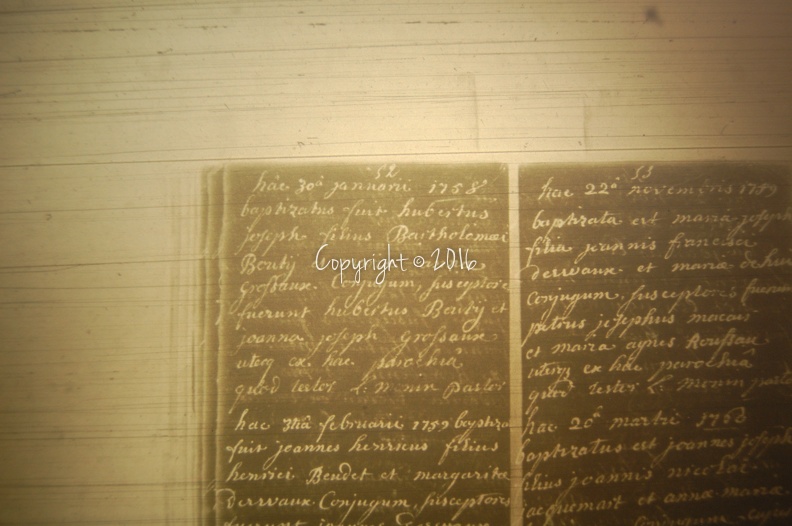 52
hâc 30â januarii 1758
baptizatus fuit hubertus
joseph filius Bartholomæi
Bouty
Copyright © 2016
grossaux. Conjugum, susceptores
fuerunt hubertus Bouty et
joanna joseph grossaux
uterq ex hac parochiâ
quod testor L. monin pastor
hac 3tiâ februarii 1759 baptiza
fuit joannes henricus filius
henrici Beudet et margarita
derwaux Conjugum, susceptores
fuerunt
53
hac 22â novembris 1759
baptizata est maria joseph
filia joannis francisci
derwaux et mariæ
Conjugum, susceptores fuerunt
petrus josephus
et maria agnes
uterq ex hac parochiâ
quod testor L. monin pastor
hac 20â martii 1760
baptizatus est joannes joseph
filius joannis nicolai
jacquemart et annæ mariæ